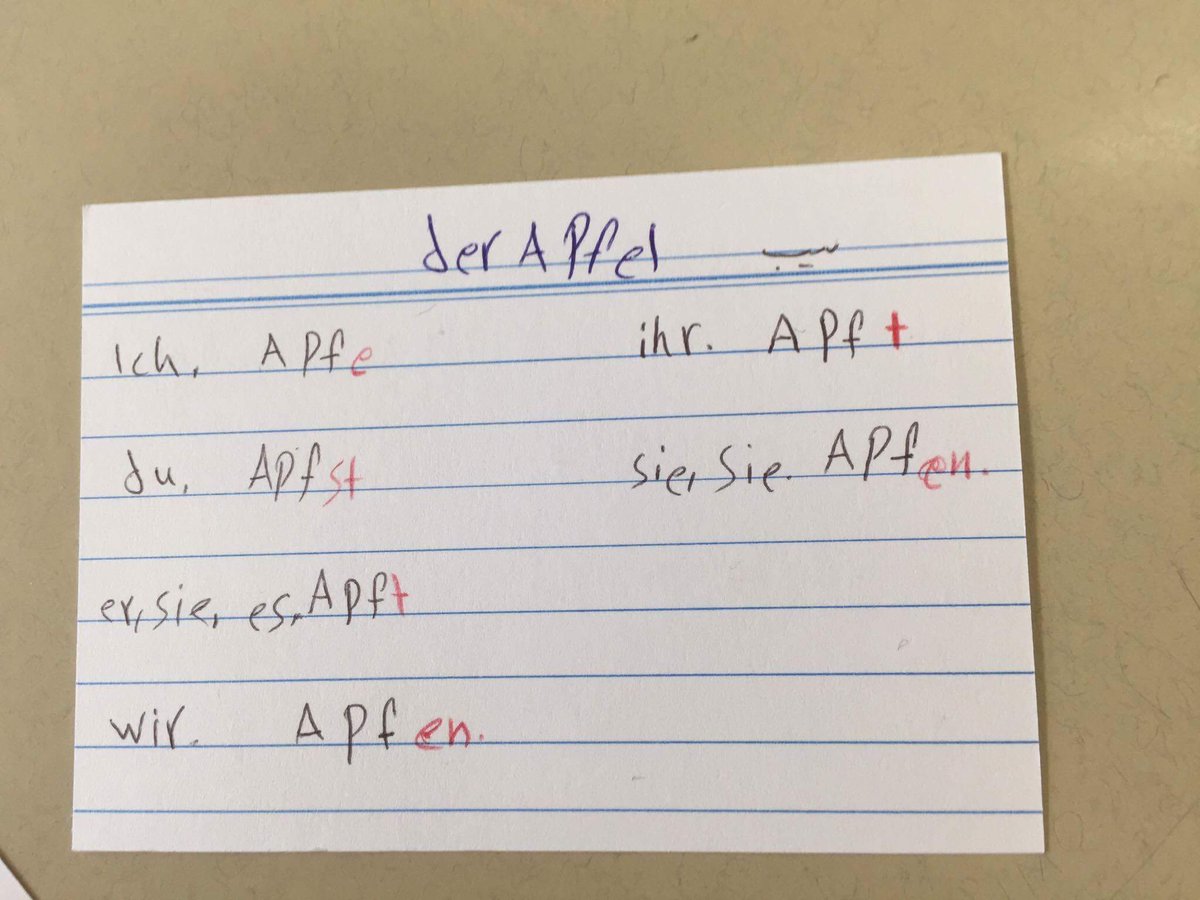 der Apfel
Ich, Apfe
du, Apfst
er, sie, es, Apft
wir. Apfen.
ihr. Apft
sie, Sie. Apfen.